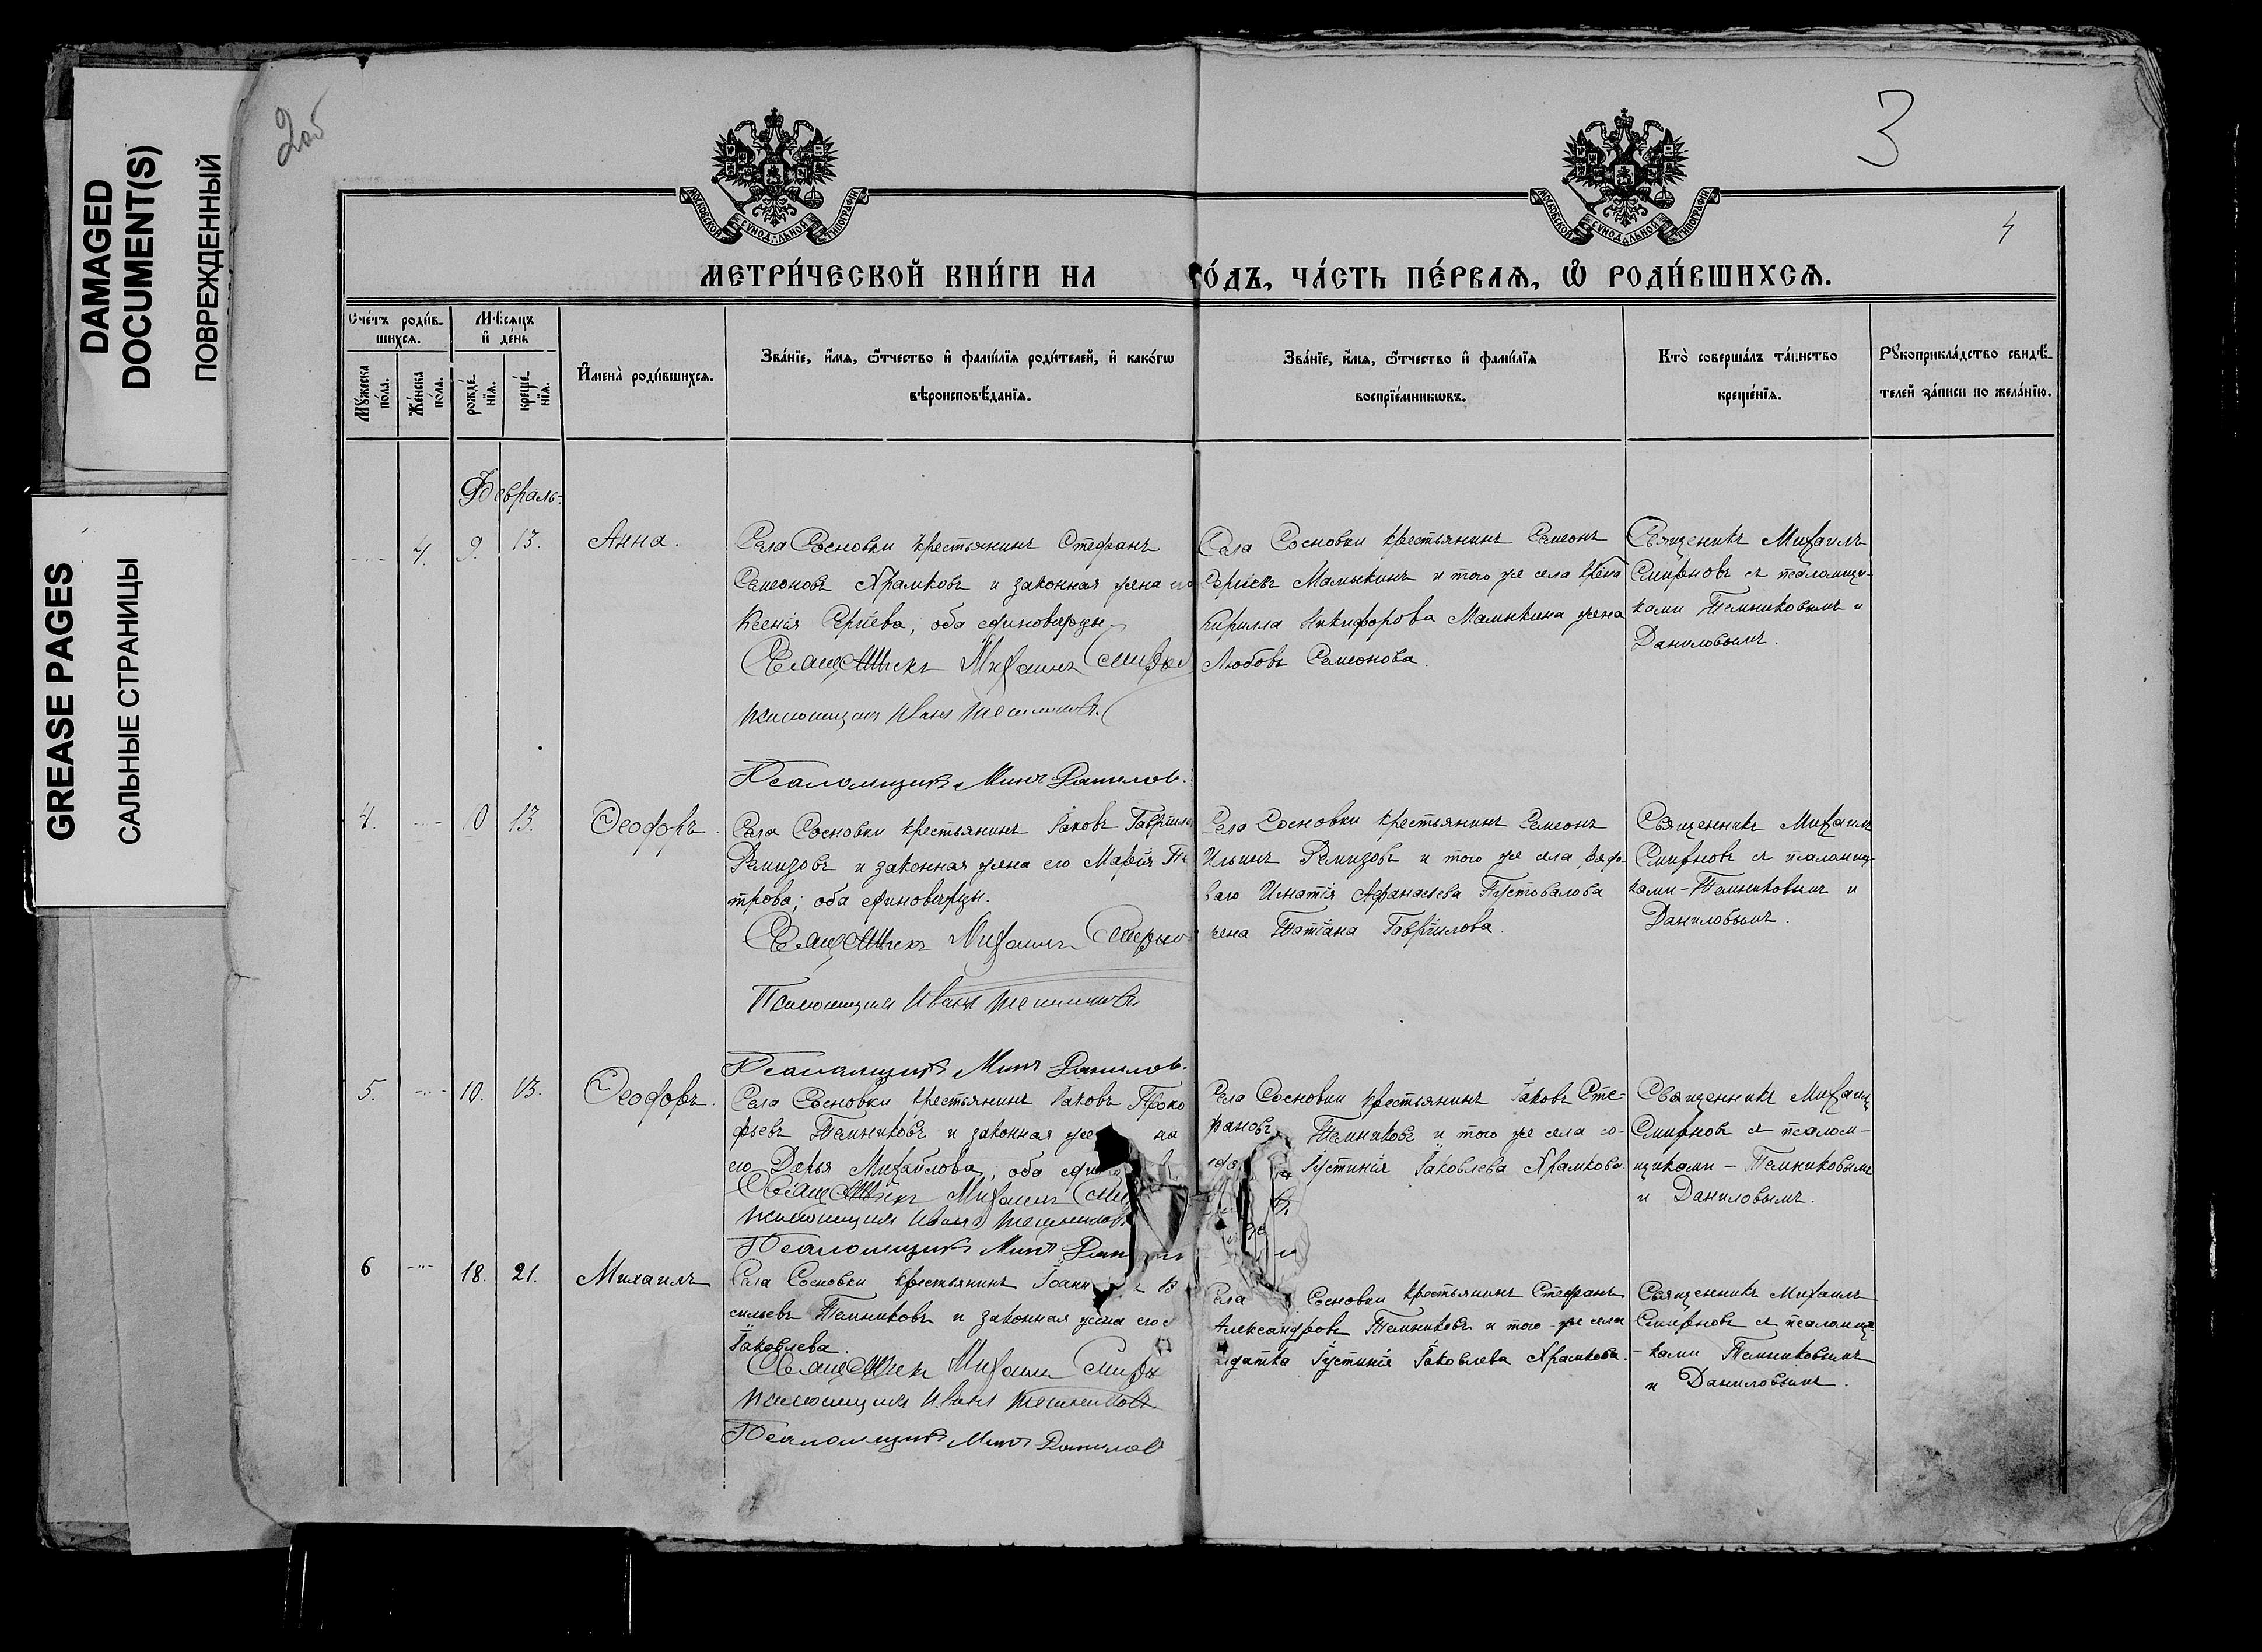 DAMAGED
DOCUMENT(S)
ПОВРЕЖДЕННЫЙ
GREASE PAGES
САЛЬНЫЕ СТРАНИЦЫ
2об
3
4
МОСКОВСКОЙ СУНОДАЛЬНОЙ ТИПОГРАФІИ
МОСКОВСКОЙ СУНОДАЛЬНОЙ ТИПОГРАФІИ
МЕТРИ́ЧЕСКОЙ КНИ́ГИ НА
О́ДЪ, ЧА́СТЬ ПЕ́РВАѦ, Ѡ҆ РОДИ́ВШИХСѦ.
Сче́тъ роди́в-
шихсѧ.
Мѣ́сѧцъ
и҆ де́нь
Мꙋ́жеска
по́ла.
Же́нска
по́ла.
рожде́-
нїѧ.
креще́-
нїѧ.
И҆мена̀ роди́вшихсѧ.
Зва́нїе, и҆́мѧ, ѻ҆́тчество и҆ фами́лїѧ роди́телей, и҆ како́гѡ
вѣроисповѣ́данїѧ.
Зва́нїе, и҆́мѧ, ѻ҆́тчество и҆ фами́лїѧ
воспрїе́мникѡвъ.
Кто̀ соверша́лъ та́инство
креще́нїѧ.
Рꙋкоприкла́дство свидѣ́-
телей за́писи по жела́нїю.
Февраль.
4. 9. 13. Анна.
Села Сосновки крестьянинъ Стефанъ
Семеновъ Храмковъ и законная жена его
Ксенія Сергіева, оба единовѣрцы.
Священникъ Михаилъ Смирнов
Псаломщикъ Иванъ Темниковъ.
Псаломщикъ Минъ Данилов.
Села Сосновки крестьянинъ Семеонъ
Сергіевъ Мамыкинъ и того же села крена
Кирилла Никифорова Мамыкина жена
Любовь Семеонова.
Священникъ Михаилъ
Смирновъ съ псаломщи-
ками Темниковымъ и
Даниловымъ.
4. 10 13. Ѳеодоръ.
Села Сосновки крестьянинъ Іаковъ Гаврiило
Ремизовъ и законная жена его Марія Пе
трова; оба единовѣрцы.
Священникъ Михаилъ Смирнов
Псаломщикъ Иванъ Темниковъ.
Псаломщикъ Минъ Данилов.
Села Сосновки крестьянинъ Семеонъ
Ильинъ Ремизовъ и того же села рядо-
ваго Игнатія Афанасьева Пустовалова
жена Татіана Гавріилова.
Священникъ Михаилъ
Смирновъ съ псаломщи-
ками - Темниковымъ и
Даниловымъ.
5. 10. 13. Ѳеодоръ.
Села Сосновки крестьянинъ Іаковъ Проко
фьевъ Темниковъ и законная же на
его Дарья Михайлова, оба един
Священникъ Михаилъ Сми
Псаломщикъ Иванъ Темников
Псаломщикъ Минъ Дан
Села Сосновки крестьянинъ Іаковъ Сте-
фановъ Темниковъ и того же села со-
Іустинія Іаковлева Храмкова
Священникъ Михаилъ
Смирновъ съ псалом-
щиками - Темниковымъ
и Даниловымъ.
6 18. 21. Михаилъ
Села Сосновки крестьянинъ Іоанн Ва
сильевъ Темниковъ и законная жена его
Іаковлева.
Священникъ Михаилъ Смирн
Псаломщикъ Иванъ Темниковъ.
Псаломщикъ Минъ Данилов
Села Сосновки крестьянинъ Стефанъ
Александровъ Темниковъ и того же села
лдатка Іустинія Іаковлева Храмкова.
Священникъ Михаилъ
Смирновъ съ псаломщи
- ками Темниковымъ
и Даниловымъ.